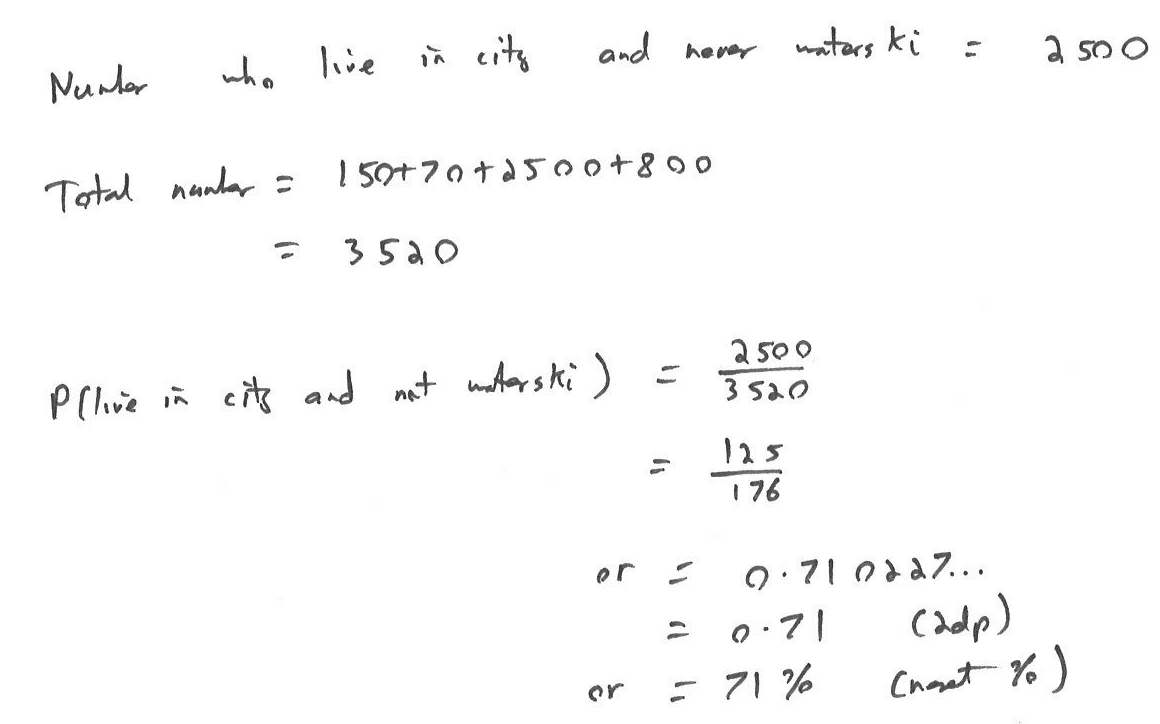 Number who live in city and never waterski = 2500
Total number = 150+70+2500+800
= 3520
P(live in city and not waterski) = 2500/3520
= 125/176
or = 0.710227...
= 0.71 (2dp)
or = 71% (nearest %)